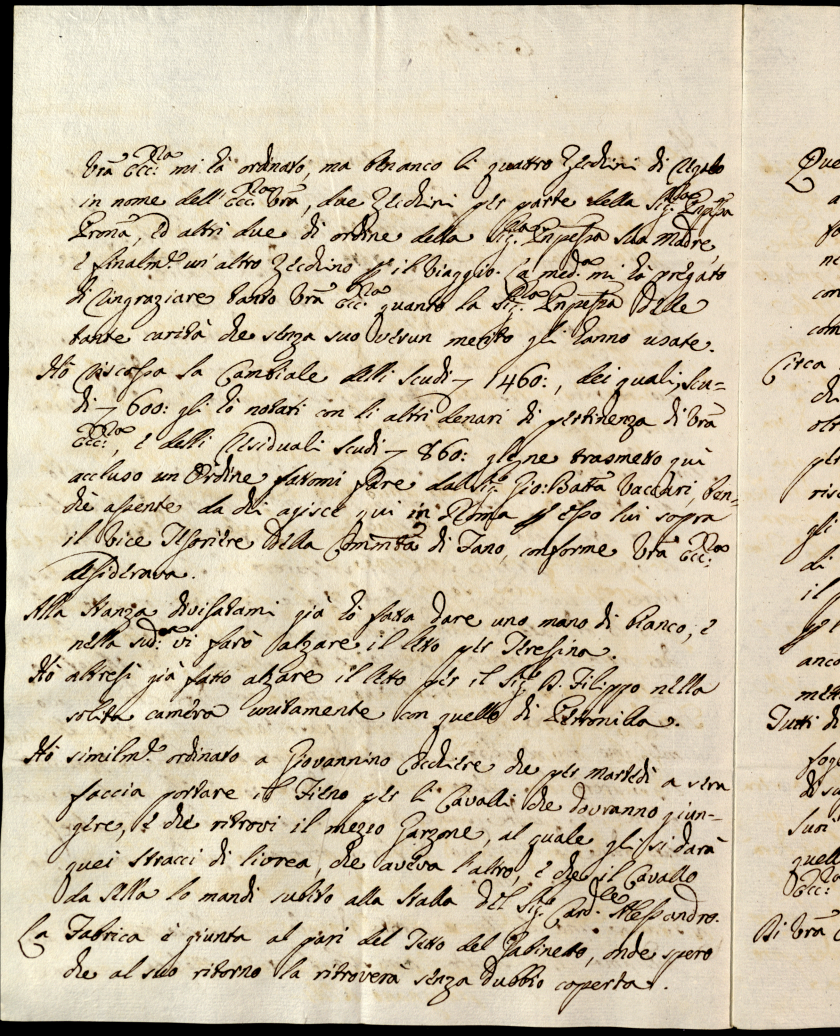 Vrã Ecc:ᶻᵃ mi hà ordinato, ma bensanco li quattro Zecchini di Regalo
in nome dell'Ecc:ᶻᵃ Vrã, due Zecchini per parte della Sig:ʳᵃ Pnpẽssa
Pronã, ed altri due di ordine della Sig:ʳᵃ Pnpẽssa sua madre,
e finalm:ᵗᵉ un'altro Zecchino p̃ il Viaggio. La med:ᵐᵃ mi hà pregato
di ringraziare tanto Vrã Ecc:ᶻᵃ quanto la Sig:ʳᵃ Pnpẽssa delle
tante carità che senza suo verun merito gli hanno usate.
Hò riscossa la Cambiale delli scudi - 1460:, dei quali, scu-
di - 600: gli hò notati con li altri denari di pertinenza di Vrã
Ecc:ᶻᵃ, e delli residuali scudi - 860: gliene trasmetto quì
accluso un Ordine fattomi fare dal Sig:ʳ Gio: Battã Vaccari, ben-
chè assente da chi agisce quì in Roma p̃ esso lui sopra
il Vice Tesoriere della Commità di Fano, conforme Vrã Ecc:ᶻᵃ
desiderava.
Alla stanza divisatami già hò fatta dare uno mano di bianco, e
nella sud:ᵃ vi farò alzare il letto per Teresina.
Hò altresì già fatto alzare il letto per il Sig:ʳ D. Filippo nella
solita camera unitamente con quello di Petronilla.
Hò similm:ᵗᵉ ordinato a Giovannino Cocchiere che per martedì a sera
faccia portare il Fieno per li Cavalli che dovranno giun-
gere, e che ritrovi il mezzo Garzone, al quale gli si darà
quei stracci di livrea, che aveva l'altro, e che il Cavallo
da sella lo mandi subito alla stalla del Sig:ʳ Card:ˡᵉ Alessandro.
La Fabrica è giunta al pari del Tetto del Gabinetto, onde spero
che al suo ritorno la ritroverà senza dubbio coperta.
Circa
Tutti di
Di Vrã